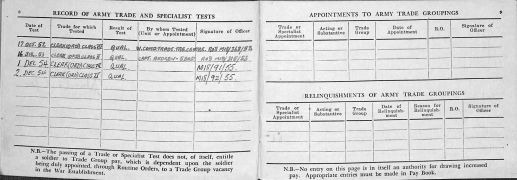 6
RECORD OF ARMY TRADE AND SPECIALIST TESTS
Date of Test
Trade for which Tested
Result of Test
By whom Tested (Unit or Appointment)
Signature of Officer
17 OCT. 52 QUAL
52 QUAL
1 DEC 54 QUAL M15/91/55.
2 DEC. 54 QUAL M15/92/55.
N.B.—The passing of a Trade or Specialist Test does not, of itself, entitle
a soldier to Trade Group pay, which is dependent upon the soldier
being duly appointed, through Routine Orders, to a Trade Group vacancy
in the War Establishment.
APPOINTMENTS TO ARMY TRADE GROUPINGS
Trade or Specialist Appointment
Acting or Substantive
Trade Group
Date of Appointment
R.O.
Signature of Officer
RELINQUISHMENTS OF ARMY TRADE GROUPINGS
Trade or Specialist Appointment
Acting or Substantive
Trade Group
Date of Relinquishment
Reason for Relinquishment
R.O.
Signature of Officer
N.B.—No entry on this page is in itself an authority for drawing increased
pay. Appropriate entries must be made in Pay Book.